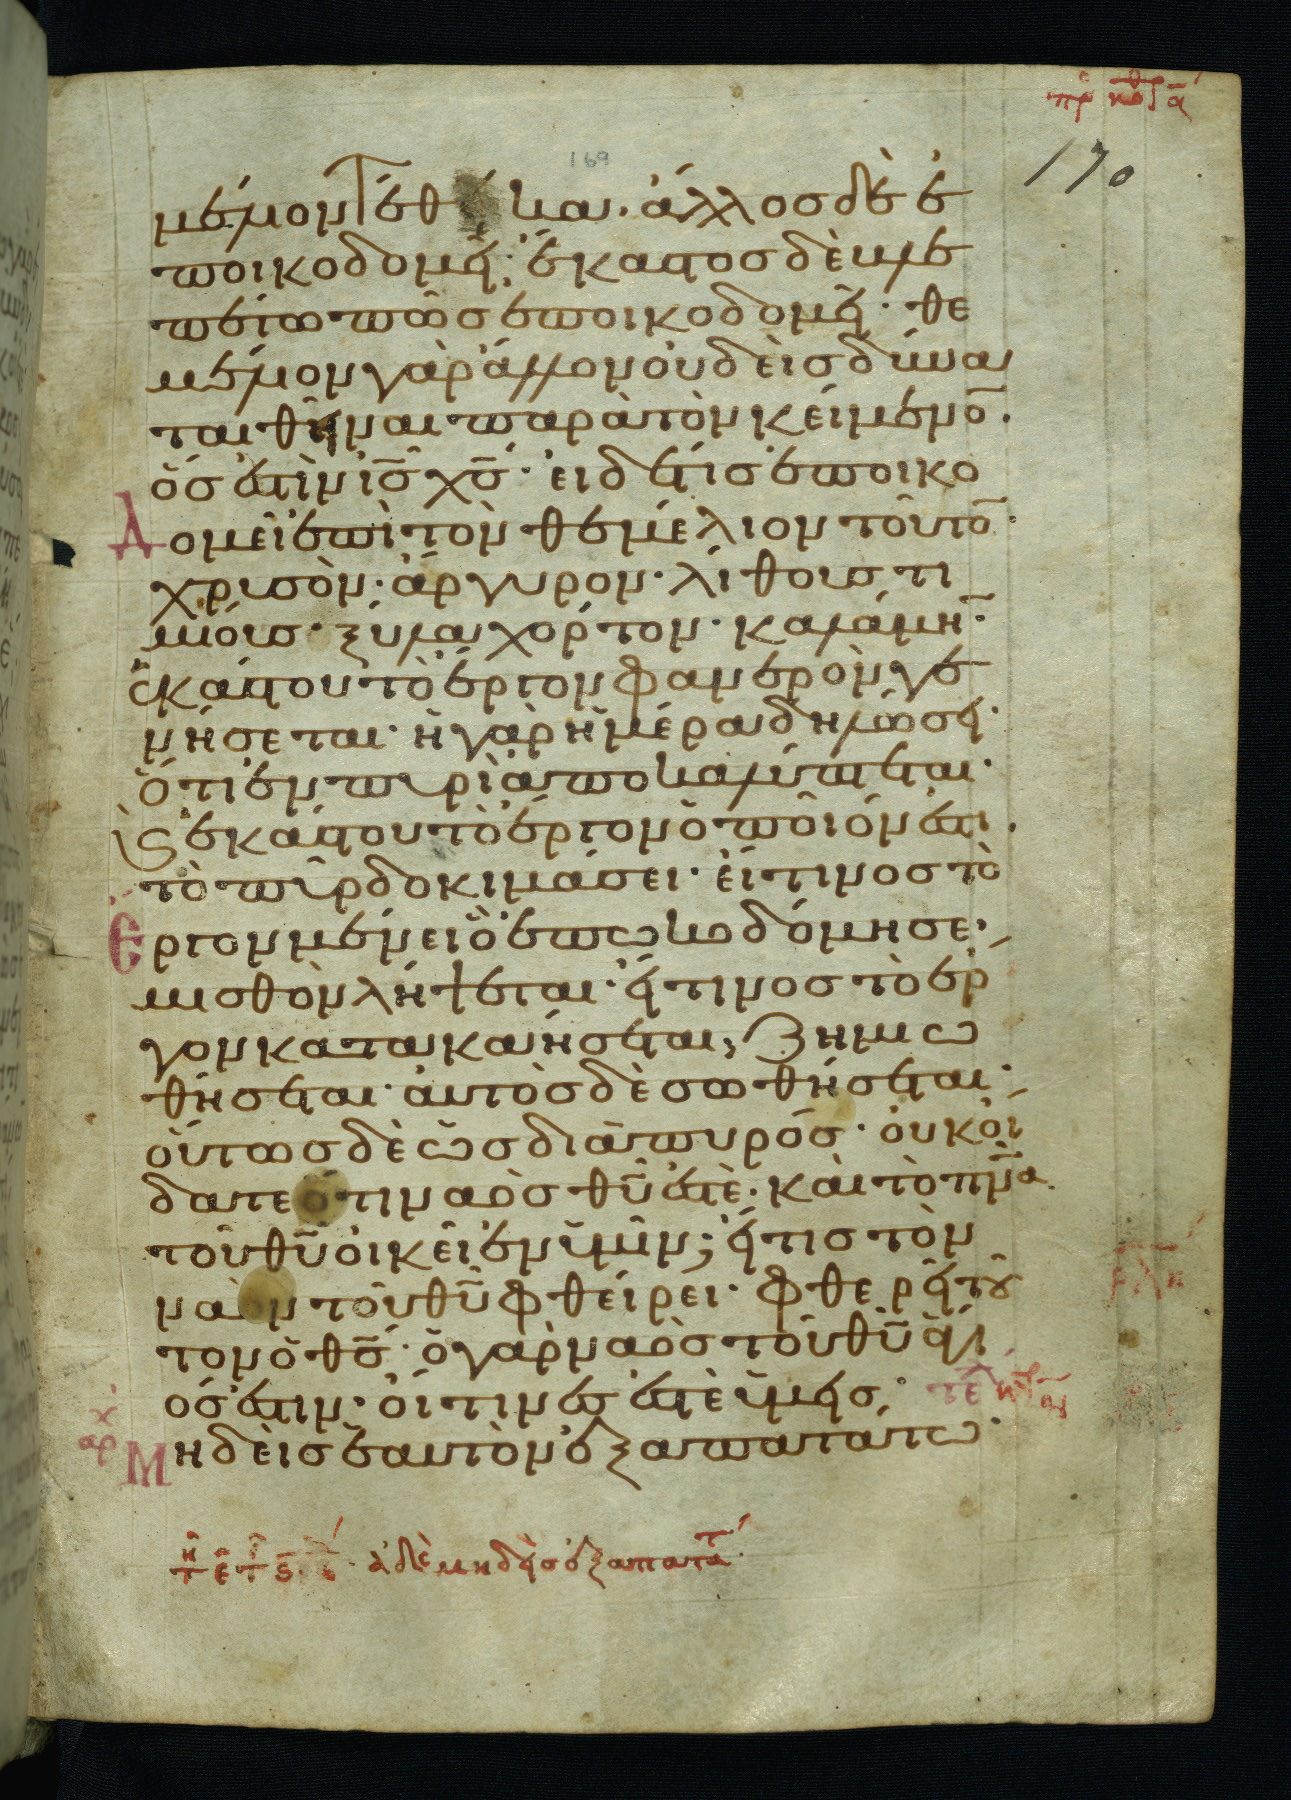 πρ κορ α
169
170
μέλιον τέθεικα· ἄλλος δὲ ἐ
ποικοδομεῖ· ἕκαστος δὲ βλε
πέτω πῶς ἐποικοδομεῖ· θε
μέλιον γὰρ ἄλλον οὐδεὶς δύνα
ται θῆναι παρὰ τὸν κείμενο̄·
ὅς ἐστὶν ις̄ χς̄· εἰ δέ τις ἐποικο
Δομεῖ ἐπὶ τὸν θεμέλιον τοῦτο̄·
χρυσὸν· ἄργυρον· λίθους τι
μίους· ξύλα χόρτον· καλάμη̄·
ἑκάστου τὸ ἔργον φανερὸν γε
νήσεται· ἡ γὰρ ἡμέρα δηλώσει·
ὅτι ἐν πυρὶ ἀποκαλύπτεται·
ϗ ἑκάστου τὸ ἔργον ὁποῖόν ἐστι·
τὸ πῦρ δοκιμάσει· εἴ τινος τὸ
Εργον μένει ὃ ἐπωκοδόμησε·
μισθὸν λήψεται· εἴ τινος τὸ ἔρ
γον κατακαήσεται, ζημιω
θήσεται· αὐτὸς δὲ σωθήσεται·
οὕτως δὲ ὡς διὰ πυρός· οὐκ οἴ
δατε ὅτι ναὸς θῦ ἐστὲ· καὶ τὸ πν̄α
τοῦ θῦ οἰκεῖ ἐν ὑμῖν; εἴ τις τὸν
ναὸν τοῦ θῦ φθείρει· φθερεῖ τοῦ
τον ὁ θς̄· ὁ γὰρ ναὸς τοῦ θῦ ἅγι
ός ἐστιν· οἵτινές ἐστὲ ὑμεῖς· τε
αρχ Μηδεὶς ἑαυτὸν ἐξαπατάτω·
ἀδε μηδεὶς ἐξαπατατ